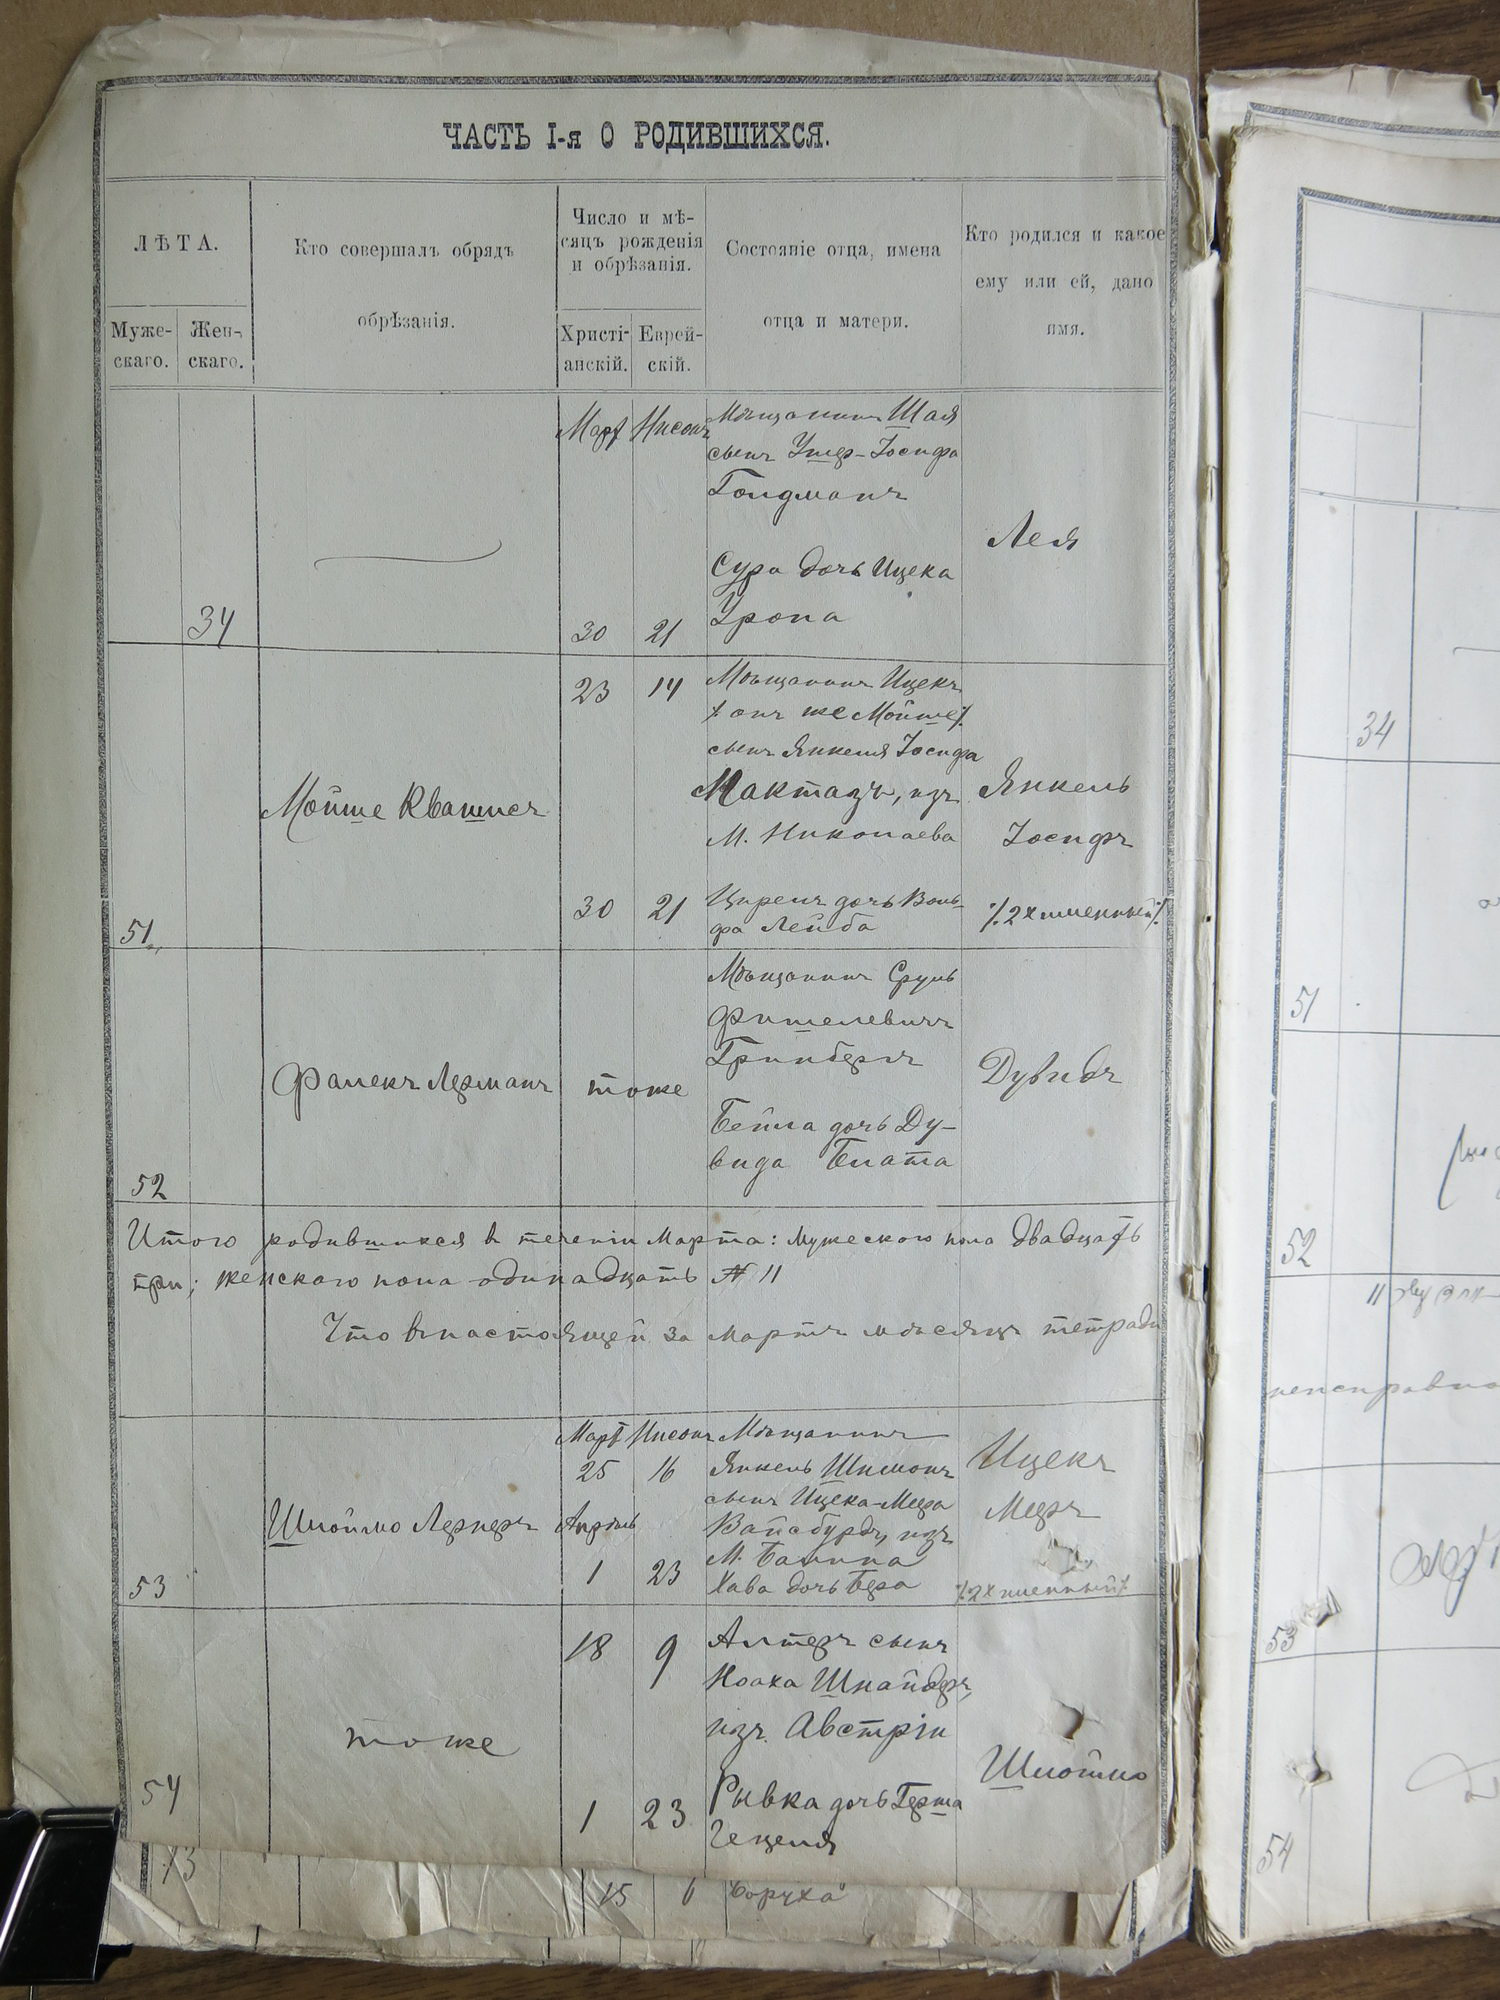 ЧАСТЬ I-я О РОДИВШИХСЯ.
ЛѢТА.
Муже-
скаго.
Жен-
скаго.
Кто совершалъ обрядъ
обрѣзанія.
Число и мѣ-
сяцъ рожденія
и обрѣзанія.
Христі-
анскій.
Еврей-
скій.
Состояніе отца, имена
отца и матери.
Кто родился и какое
ему или ей, дано
имя.
34
Март Нисонъ
30 21
Мѣщанинъ Шая
сынъ Ушер-Іосифа
Голдманъ
Сура дочь Ицека
Лея
51
Мойше Квашнеръ
23 14
30 21
Мѣщанинъ Ицекъ
/. онъ же Мойше /.
сынъ Янкеля Іосифа
Мактазъ, изъ
М. Николаева
Ципренъ дочь Воль-
фа Лейба
Янкель
Іосифъ
/. 2х именный /.
52
Фалекъ Лерманъ
тоже
Мѣщанинъ Сруль
Фишелевичъ
Гринбергъ
Бейла дочь Ду-
вида Блата
Дувидъ
Итого родившихся в теченіи Марта: мужескаго пола двадцать
три; женскаго пола одинадцать № 11
Что въ настоящей за Мартъ мѣсяцъ тетради
53
Шлоймо Лернеръ
Март Нисонъ
25 16
Апрѣль
1 23
Мѣщанинъ
Янкель Шимонъ
сынъ Ицека-Меера
Вайсбурдъ, изъ
М. Балина
Хава дочь Бера
Ицекъ
Мееръ
/. 2х именный /.
54
тоже
18 9
1 23
Алтеръ сынъ
Ноаха Шнайдеръ,
изъ Австріи
Рывка дочь Герша
Гецеля
Шлоймо
13
15 6 Боруха
34
51
52
11
неисправно
53
54